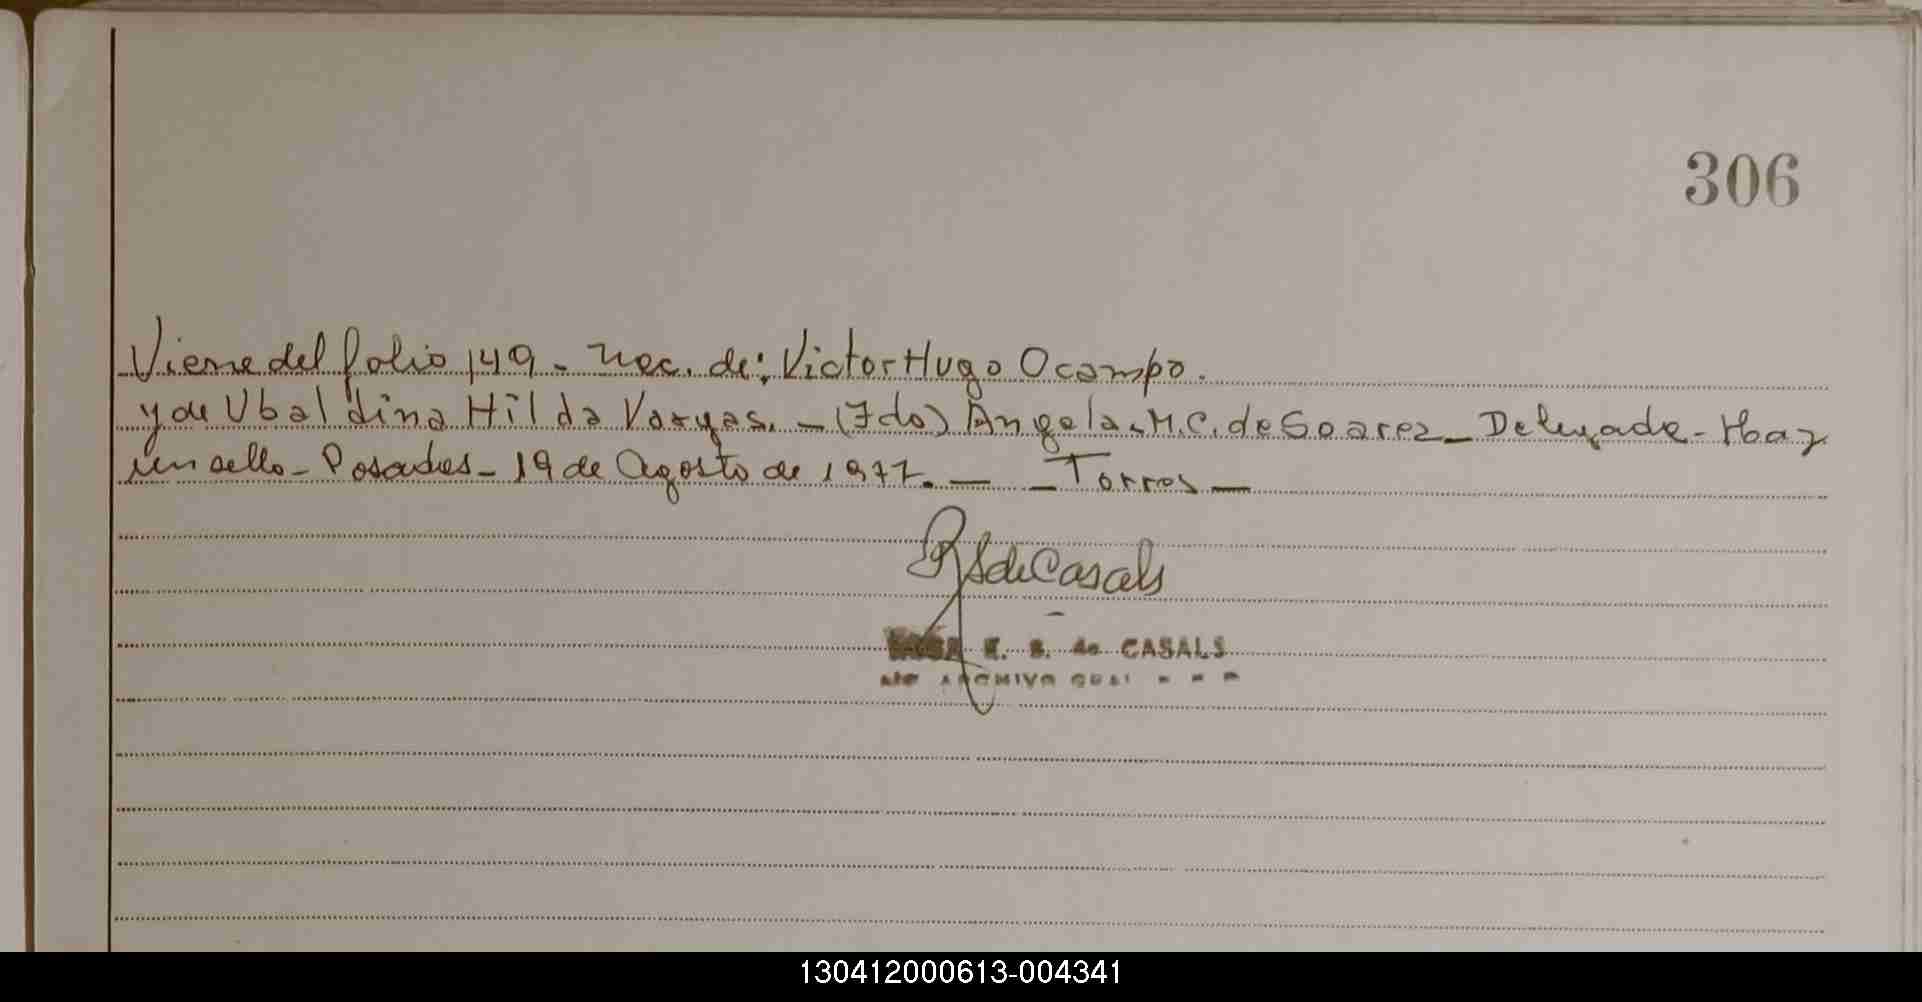 306
Viene del folio 149 - Nac. de: Victor Hugo Ocampo.
y de Ubaldina Hilda Vargas. - (Fdo) Angela M.C. de Soarez - Delegada - Hay
un sello - Posadas - 19 de Agosto de 1977. - - Torres -
S de Casals
E. S. de CASALS
ARCHIVO GRAL
130412000613-004341